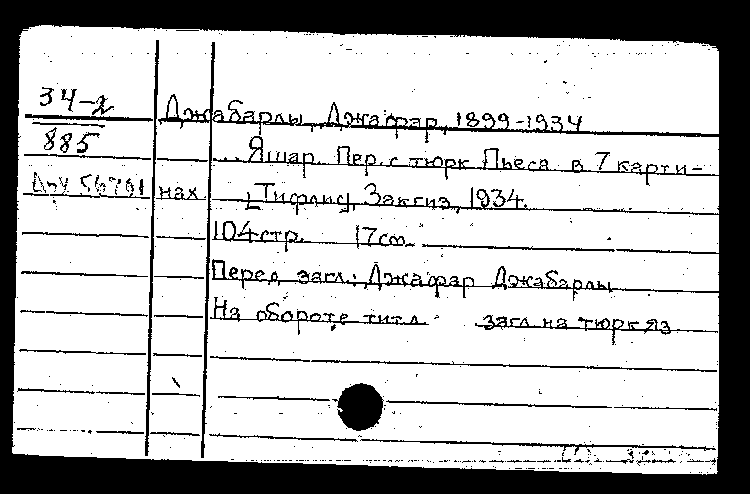 34-2
885
Джабарлы, Джафар, 1899-1934
... Яшар. Пер. с тюрк Пьеса в 7 карти-
нах [Тифлис], Закгиз, 1934.
104 стр. 17 см.
Перед загл.: Джафар Джабарлы
На обороте титл. загл на тюрк яз.